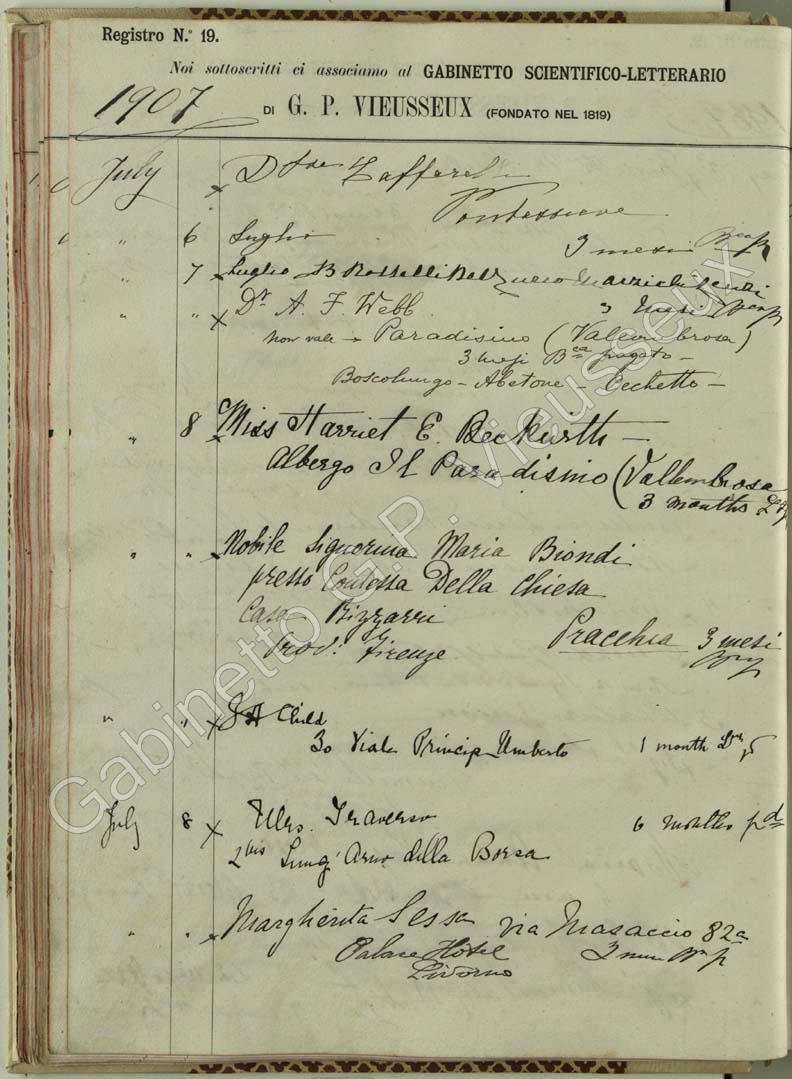 Registro N.° 19.
Noi sottoscritti ci associamo al GABINETTO SCIENTIFICO-LETTERARIO
1907 DI G. P. VIEUSSEUX (FONDATO NEL 1819)
July x Zafferelli
Pontassieve
" 6 Luglio 3 mesi
" 7 x Luglio B Rosselli Del
" " x Dr A. F. Webb 3 mesi
non vale Paradisino (Vallombrosa)
3 mesi pagato —
Boscolungo — Abetone — Cecchetto —
" 8 x Miss Harriet E. Beckwith —
Albergo Il Paradisino (Vallombrosa
3 months
" " x Nobile Signorina Maria Biondi
presso Contessa Della Chiesa
Casa Bizzarri
Prov: Firenze Pracchia 3 mesi
" " x Child
30 Viale Princip Umberto 1 month
July 8 x Mrs. Traverso 6 months pd
2bis Lung'Arno della Borsa
" " x Margherita Sessa via Masaccio 82a
Palace Hôtel
Livorno
Gabinetto G.P. Vieusseux